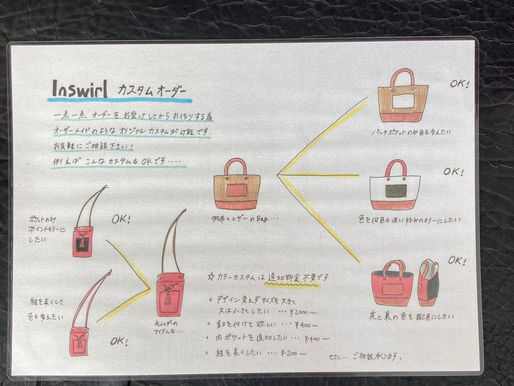 Inswirl カスタムオーダー
一点一点、オーダーをお受けしてからお作りする為
オーダーメイドのようなオリジナルカスタムが可能です。
お気軽にご相談下さい！
例えばこんなカスタムもOKです････
OK!
パッチポケットのみ色を変えたい
OK!
色を何色も使い好みのカラーにしたい
OK!
表と裏の色を配色にしたい
帆布×レザーのBag…
ポケットのみ
ポイントカラーに
したい
OK!
紐を長くして
色も変えたい
OK!
ホルダーの
アイテムも…
☆ カラーカスタムは追加料金不要です
• デザイン変えずサイズを大きく
又は小さくしたい … ¥2000〜
• を付けて欲しい … ¥400〜
• 内ポケットを追加したい … ¥400〜
• 紐を長くしたい … ¥200〜
etc… ご相談下さいませ。